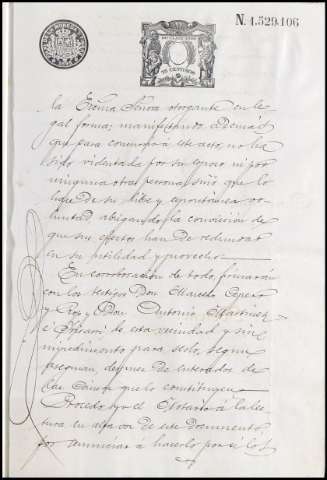 N. 1.529.106
la Excma Señora otorgante en le-
gal forma; manifestando además
que para concurrir á este acto, no ha
sido violentada por su esposo ni por
ninguna otra persona, sinó que lo
hace de su libre y espontánea vo-
luntad abrigando la convicción de
que sus efectos han de redundar
en su utilidad y provecho
En corroboración de todo, firmarán
con los testigos Don Marcelo Cepero
y Don Antonio Martinez
de esta vecindad y sin
impedimento para serlo, segun
aseguran, despues de enterados de
que lo constituyen
Procedo yo el Notario á la lec-
tura en alta voz de este documento
por renunciar á hacerlo por sí los